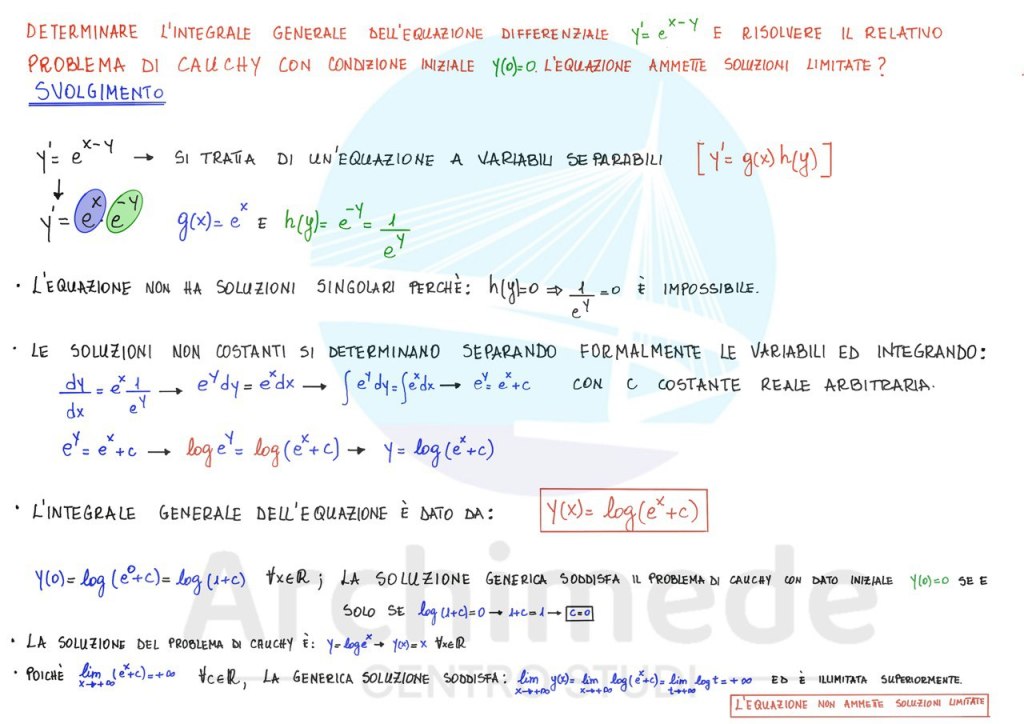 DETERMINARE L'INTEGRALE GENERALE DELL'EQUAZIONE DIFFERENZIALE y'= e^{x-y} E RISOLVERE IL RELATIVO
PROBLEMA DI CAUCHY CON CONDIZIONE INIZIALE y(0)=0. L'EQUAZIONE AMMETTE SOLUZIONI LIMITATE?
SVOLGIMENTO
y'= e^{x-y} → SI TRATTA DI UN'EQUAZIONE A VARIABILI SEPARABILI [y'= g(x) h(y)]
↓
y'= e^x · e^{-y} g(x)= e^x E h(y)= e^{-y} = 1/e^y
· L'EQUAZIONE NON HA SOLUZIONI SINGOLARI PERCHÈ: h(y)=0 ⇒ 1/e^y =0 È IMPOSSIBILE.
· LE SOLUZIONI NON COSTANTI SI DETERMINANO SEPARANDO FORMALMENTE LE VARIABILI ED INTEGRANDO:
dy/dx = e^x 1/e^y → e^y dy = e^x dx → ∫e^y dy = ∫e^x dx → e^y = e^x + c CON C COSTANTE REALE ARBITRARIA.
e^y = e^x + c → log e^y = log(e^x+c) → y = log(e^x+c)
· L'INTEGRALE GENERALE DELL'EQUAZIONE È DATO DA: y(x)= log(e^x+c)
y(0)= log(e^0+c)= log(1+c) ∀x∈ℝ; LA SOLUZIONE GENERICA SODDISFA IL PROBLEMA DI CAUCHY CON DATO INIZIALE y(0)=0 SE E
SOLO SE log(1+c)=0 → 1+c=1 → c=0
· LA SOLUZIONE DEL PROBLEMA DI CAUCHY È: y= log e^x → y(x)= x ∀x∈ℝ
· POICHÈ lim x→+∞ (e^x+c)=+∞ ∀c∈ℝ, LA GENERICA SOLUZIONE SODDISFA: lim x→+∞ y(x)= lim x→+∞ log(e^x+c)= lim t→+∞ log t = +∞ ED È ILLIMITATA SUPERIORMENTE.
L'EQUAZIONE NON AMMETTE SOLUZIONI LIMITATE
Archimede
CENTRO STUDI